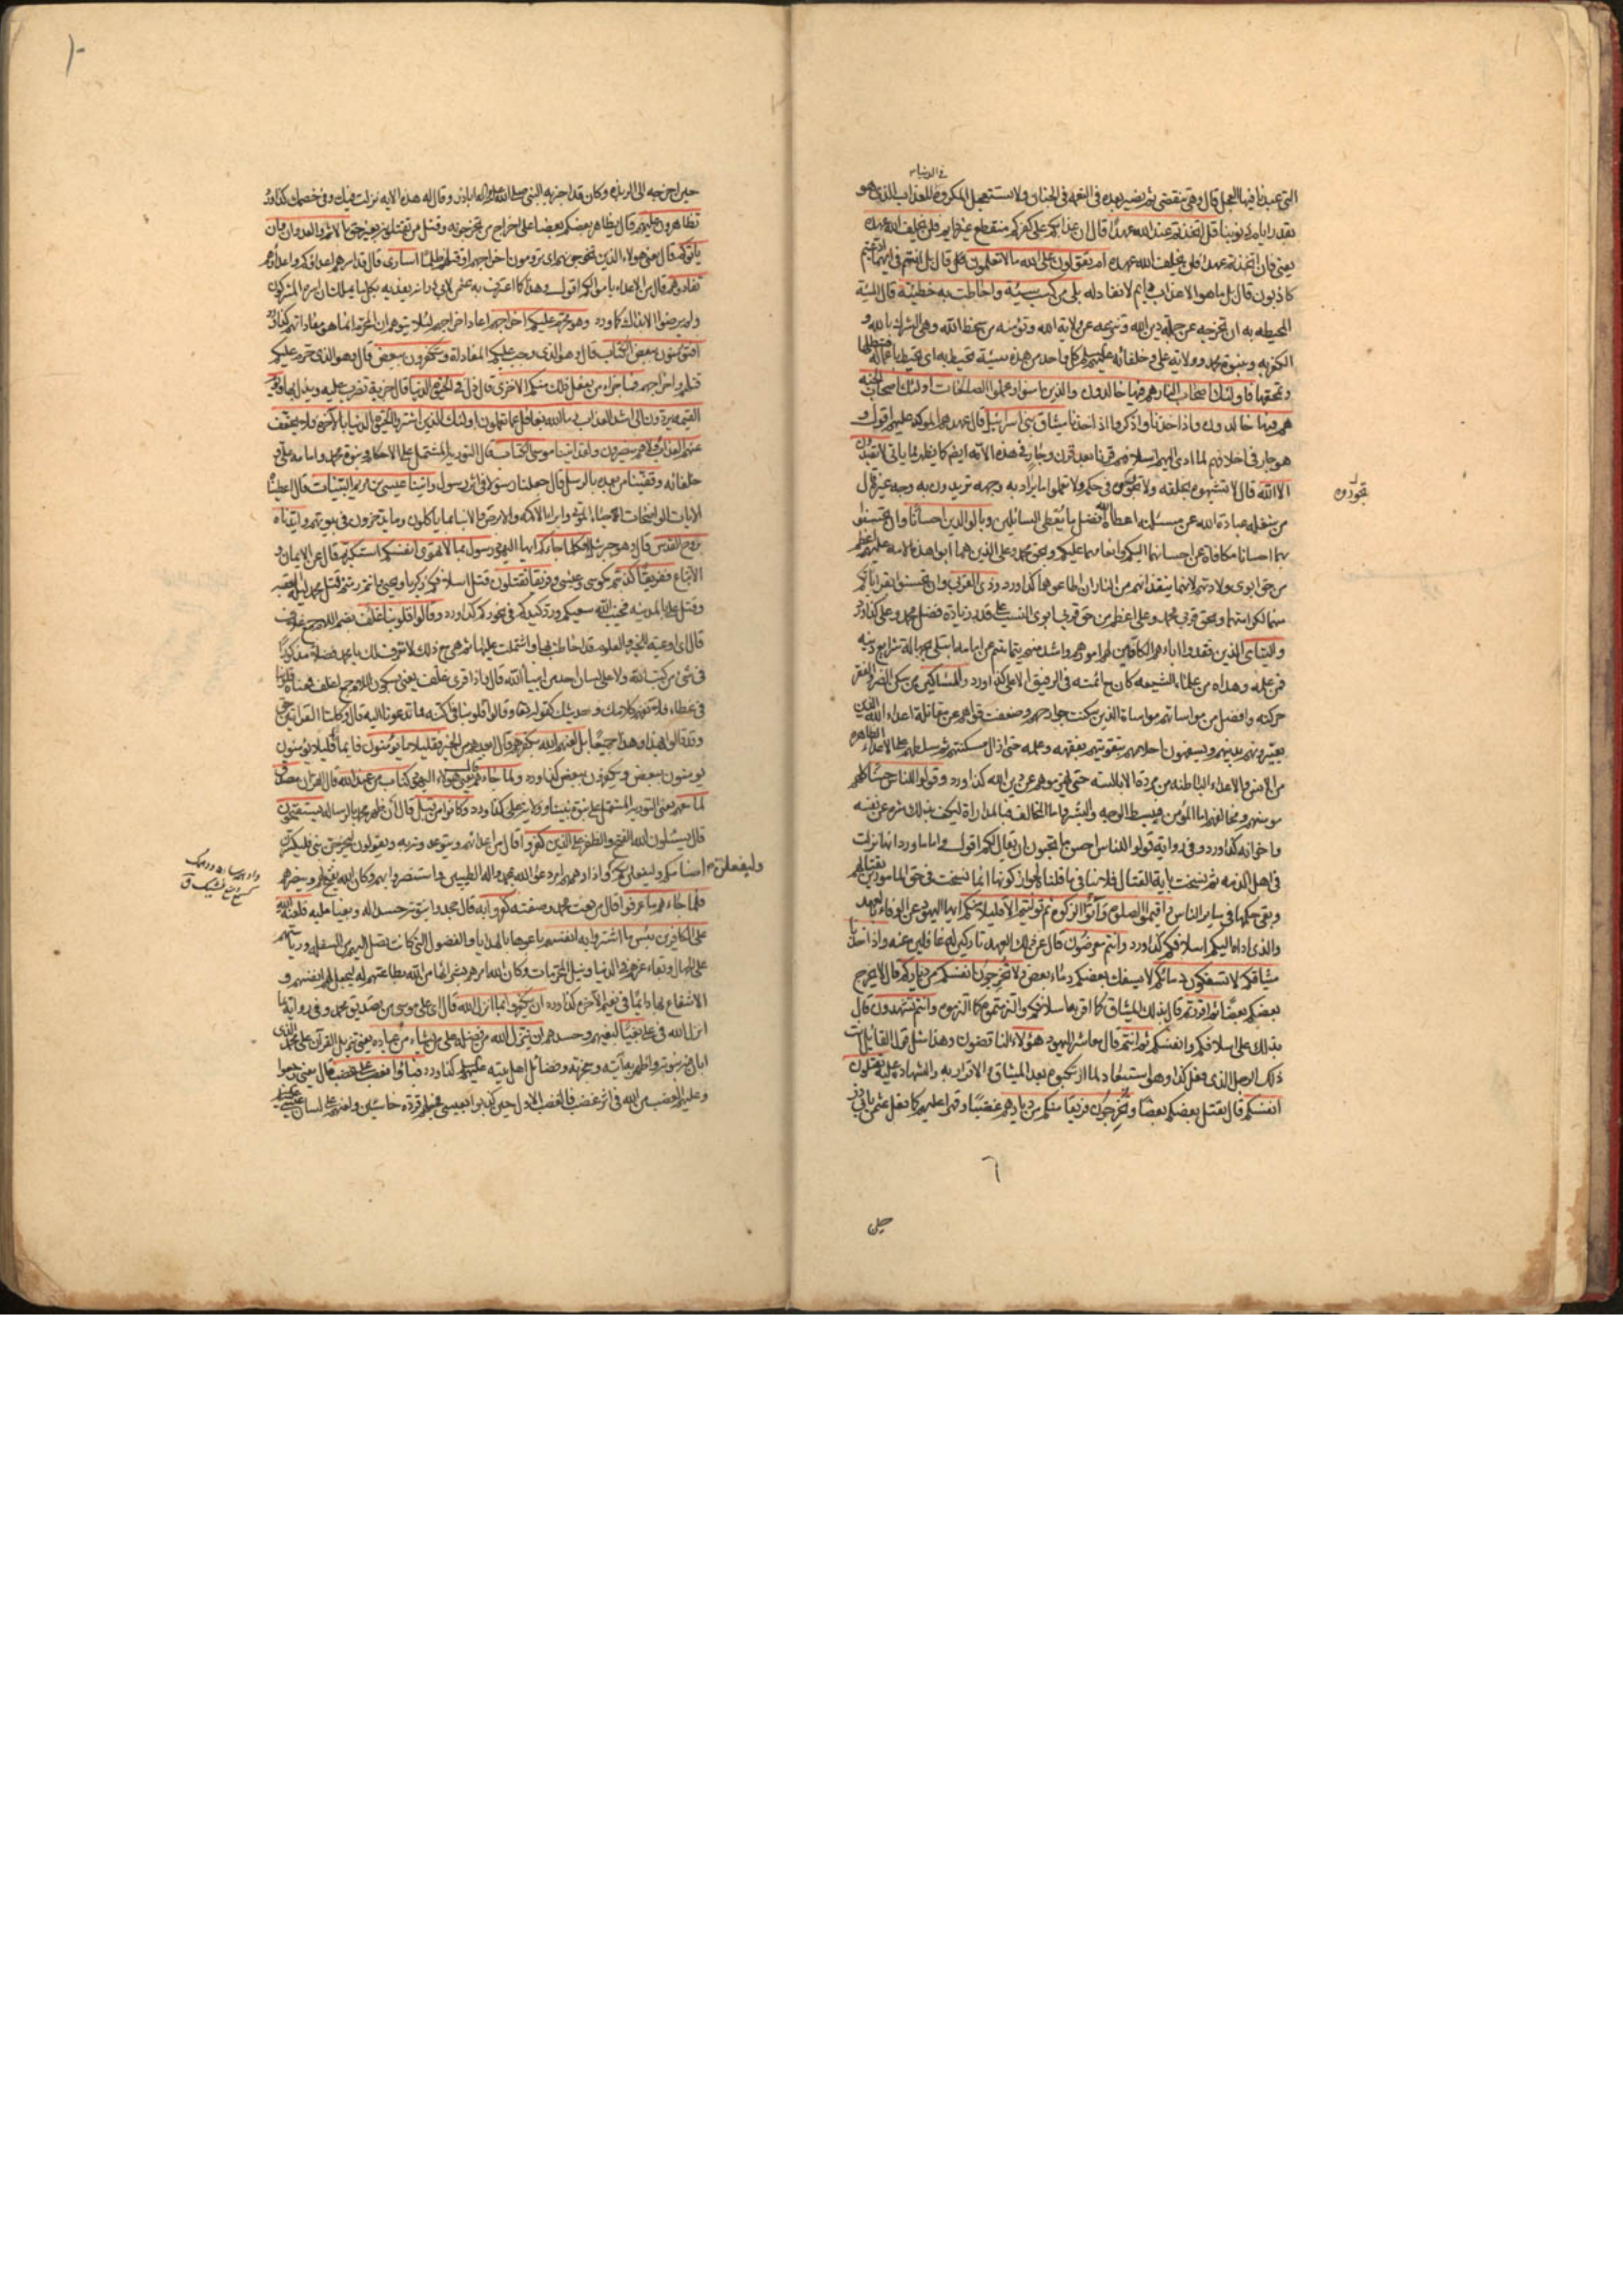 في الدنيا
التي عبدنا فيها العجل قال وهي تنقضي ثم نصير بعده في النعمة في الجنان ولا نستعجل المكروه للعذاب الذي هو
بقدر ايام ذنوبنا قل اتخذتم عند الله عهدا قال ان عذابكم على كفركم منقطع غير دايم فلن يخلف الله عهده
يعني فان اتخذتم عهدا فلن يخلف الله عهده ام تقولون على الله ما لا تعلمون قال بل انتم في ايهما ادعيتم
كاذبون قال بل ما هو الا عذاب دايم لا نفاد له بلى من كسب سيئة واحاطت به خطيئته قال السيئة
المحيطة به ان تخرجه عن جملة دين الله وتنزعه عن ولاية الله وتؤمنه من سخط الله وهي الشرك بالله و
الكفر به وبنبوة محمد وولاية علي وخلفائه كل واحد من هذه سيئة تحيط به اي تحيط باعماله فتبطلها
وتمحقها فاولئك اصحاب النار هم فيها خالدون والذين امنوا وعملوا الصالحات اولئك اصحاب الجنة
هم فيها خالدون واذ اخذنا واذكروا اذ اخذنا ميثاق بني اسرائيل قال عهدهم المؤكد عليهم اقول و
هو جار في اخلافهم لما ادى اليهم اسلافهم قرنا بعد قرن وجار في هذه الامة ايضا كما يظهر مما ياتي لا تعبدون
الا الله قال لا تشبهوه بخلقه ولا تجوروه في حكمه ولا تعملوا ما يراد به وجهه تريدون به وجه غيره قال
من شغله عبادة الله عن مسئلته اعطاه افضل ما يعطي السائلين وبالوالدين احسانا وان تحسنوا
بهما احسانا مكافاة عن احسانهما اليكم وانعامهما عليكم وبحق محمد وعلي الذين هما ابوا هذه الامة عليهم اعظم
من حق ابوي ولادتهم لانهما ينقذانهم من النار ان اطاعوهما كذا ورد وذي القربى وان تحسنوا بقراباتكم
منهما لكرامتهما وبحق قربى محمد وعلي اعظم من حق قربى ابوي النسب على قدر زيادة فضل محمد وعلي كذا ورد
واليتامى الذين فقدوا اباءهم الكافين لهم امورهم واشد منهم يتما يتيم عن امامه ابتلي بجهالة شرايع دينه
فمن علمه وهداه من علماء الشيعة كان مع ائمته في الرفيق الاعلى كذا ورد والمساكين من سكن الضر والفقر
حركته وافضل من مواساتهم مواساة الذين سكنت جوارحهم وضعفت قواهم عن مقاتلة اعداء الله الذين
يعيرونهم بدينهم ويسفهون احلامهم بتقويتهم بفقهه وعلمه حتى ازال مسكنتهم ثم سلطهم على الاعداء الظاهرة
من الانس والاعداء الباطنة من مردة الابالسة حتى يهزموهم عن دين الله كذا ورد وقولوا للناس حسنا كلهم
مومنهم ومخالفهم اما المؤمن فيبسط الوجه والبشر واما المخالف فبالمداراة ليكف بذلك شره عن نفسه
واخوانه كذا ورد وفي رواية قولوا للناس احسن ما تحبون ان يقال لكم اقول واما ما ورد انها نزلت
في اهل الذمة ثم نسخت باية القتال فلا ينافي ما قلنا لجواز كونها انما نسخت في حق المامورين بقتالهم
وبقي حكمها في ساير الناس واقيموا الصلوة وآتوا الزكوة ثم توليتم الا قليلا منكم ايها اليهود عن الوفاء بالعهد
والذي اداه اليكم اسلافكم كذا ورد وانتم معرضون قال عن ذلك العهد تاركين له غافلين عنه واذ اخذنا
ميثاقكم لا تسفكون دمائكم لا يسفك بعضكم دماء بعض ولا تخرجون انفسكم من دياركم قال لا يخرج
بعضكم بعضا ثم اقررتم قال بذلك الميثاق كما اقر به اسلافكم والتزمتموه كما التزموه وانتم تشهدون قال
بذلك على اسلافكم وانفسكم ثم انتم قال معاشر اليهود هؤلاء الناقضون وهذا مثل قول القائل انت
ذلك الرجل الذي فعل كذا وهو استبعاد لما ارتكبوه بعد الميثاق والاقرار به والشهادة عليه تقتلون
انفسكم قال يقتل بعضكم بعضا وتخرجون فريقا منكم من ديارهم غضبا وقهرا عليهم كما فعل عثمن بابي ذر
حين اخرجه الى الربذة وكان قد اخبر به النبي صلى الله عليه واله اباذر وقال له هذه الاية نزلت فيك وفي خصمك كذا ورد
تظاهرون عليهم قال يظاهر بعضكم بعضا على اخراج من تخرجونه وقتل من تقتلونه بغير حق بالاثم والعدوان وان
ياتوكم قال يعني هولاء الذين تخرجونهم اي ترومون اخراجهم او قتلهم ظلما اسارى قال قد اسرهم اعداؤكم واعداؤهم
تفادوهم قال من الاعداء باموالكم اقول وهذا كما اعترف به عثمن
ولم يرضوا الا بذلك كما ورد وهو محرم عليكم اخراجهم اعاد اخراجهم لئلا يتوهم ان المحرم انما هو مفاداتهم كذا ورد
افتؤمنون ببعض الكتاب قال وهو الذي وجب عليكم المفاداة وتكفرون ببعض قال وهو الذي حرم عليكم
قتلهم واخراجهم فما جزاء من يفعل ذلك منكم الا خزي قال ذل في الحيوة الدنيا قال جزية تضرب عليه ويذل بها ويوم
القيمة يردون الى اشد العذاب وما الله بغافل عما تعملون اولئك الذين اشتروا الحيوة الدنيا بالاخرة فلا يخفف
عنهم العذاب ولا هم ينصرون ولقد اتينا موسى الكتاب قال التورية المشتمل على الاحكام ونبوة محمد وامامة علي و
خلفائه وقفينا من بعده بالرسل قال جعلنا رسولا في اثر رسول واتينا عيسى بن مريم البينات قال اعطيناه
الايات الواضحات كاحياء الموتى وابراء الاكمه والابرص والانباء بما ياكلون وما يدخرون في بيوتهم وايدناه
بروح القدس قال وهو جبرئيل افكلما جاءكم ايها اليهود رسول بما لا تهوى انفسكم استكبرتم قال عن الايمان و
الاتباع ففريقا كذبتم كموسى وعيسى وفريقا تقتلون قتل اسلافكم زكريا ويحيى وانتم رمتم قتل محمد ليلة العقبة
وقتل علي بالمدينة فخيب الله سعيكم ورد كيدكم في نحوركم كذا ورد وقالوا قلوبنا غلف بضم اللام جمع غلاف
قال اي اوعية للخير والعلوم قد احاطت بها واشتملت عليها ثم هي مع ذلك لا تعرف لك يا محمد فضلا مذكورا
في شئ من كتب الله ولا على لسان احد من انبياء الله قال واذا قرئ غلف يعني بسكون اللام جمع اغلف فمعناه قلوبنا
في غطاء فلا نفهم كلامك وحديثك كقوله تعالى وقالوا قلوبنا في اكنة مما تدعونا اليه قال وكلتا القرائتين حق
وقد قالوا بهذا وهذا جميعا بل لعنهم الله بكفرهم قال ابعدهم من الخير فقليلا ما يؤمنون فايمانا قليلا يؤمنون
يومنون ببعض ويكفرون ببعض كذا ورد ولما جاءهم يعني هولاء اليهود كتاب من عند الله قال القران مصدق
لما معهم يعني التورية المشتمل على نبوة نبينا وولاية علي كذا ورد وكانوا من قبل قال ان ظهر محمد بالرسالة يستفتحون
قال يسئلون الله الفتح والظفر على الذين كفروا قال من اعدائهم
وليفعلن
فلما جاءهم ما عرفوا قال من نعت محمد وصفته كفروا به قال جحدوا نبوته حسدا له وبغيا عليه فلعنة الله
على الكافرين بئس ما اشتروا به انفسهم باعوها بالهدايا والفضول التي كانت تصل اليهم من السفلة ورياستهم
على الجهال وبقاء عزهم في الدنيا ونيل المحرمات وكان الله امرهم بشرائها من الله بطاعتهم له ليجعل لهم انفسهم و
الانتفاع بها دايما في نعيم الاخرة كذا ورد ان يكفروا بما انزل الله قال اي على موسى من تصديق محمد وفي رواية بما
انزل الله في علي بغيا لبغيهم وحسدهم ان ينزل الله من فضله على من يشاء من عباده يعني تنزيل القرآن على محمد الذي
ابان فيه نبوته واظهر به آيته ومعجزته وفضائل اهل بيته كذا ورد فباؤا بغضب على غضب قال يعني رجعوا
وعليهم الغضب من الله في اثر غضب فالغضب الاول حين كذبوا بعيسى فجعلهم قردة خاسئين ولعنهم على لسان عيسى